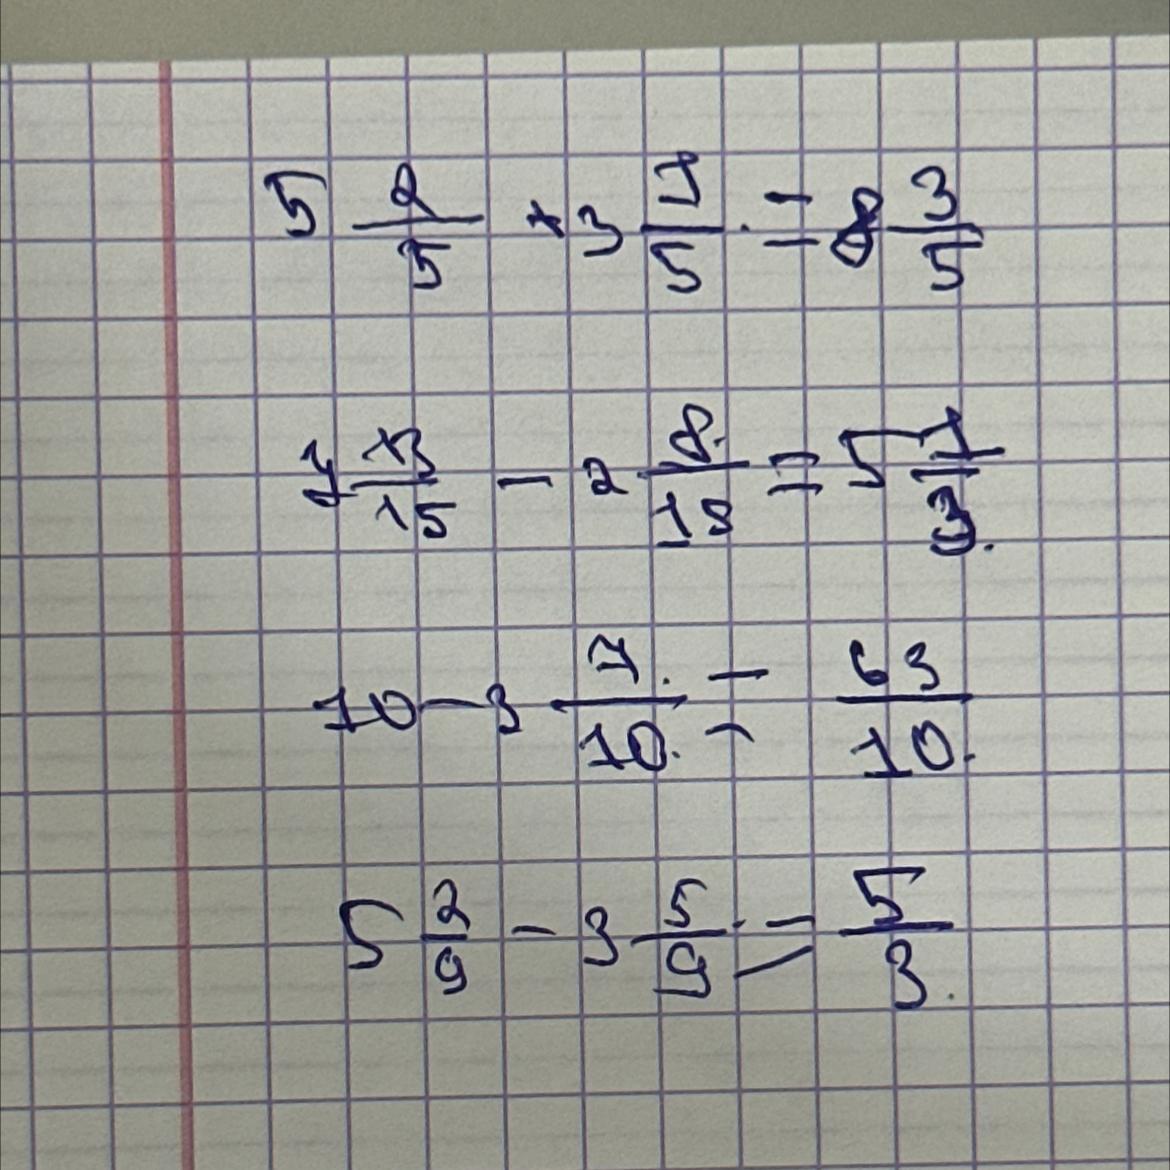 5 2/5 + 3 1/5 = 8 3/5
7 13/15 - 2 8/15 = 5 1/3.
10 - 3 7/10 = 63/10.
5 2/9 - 3 5/9 = 5/3.